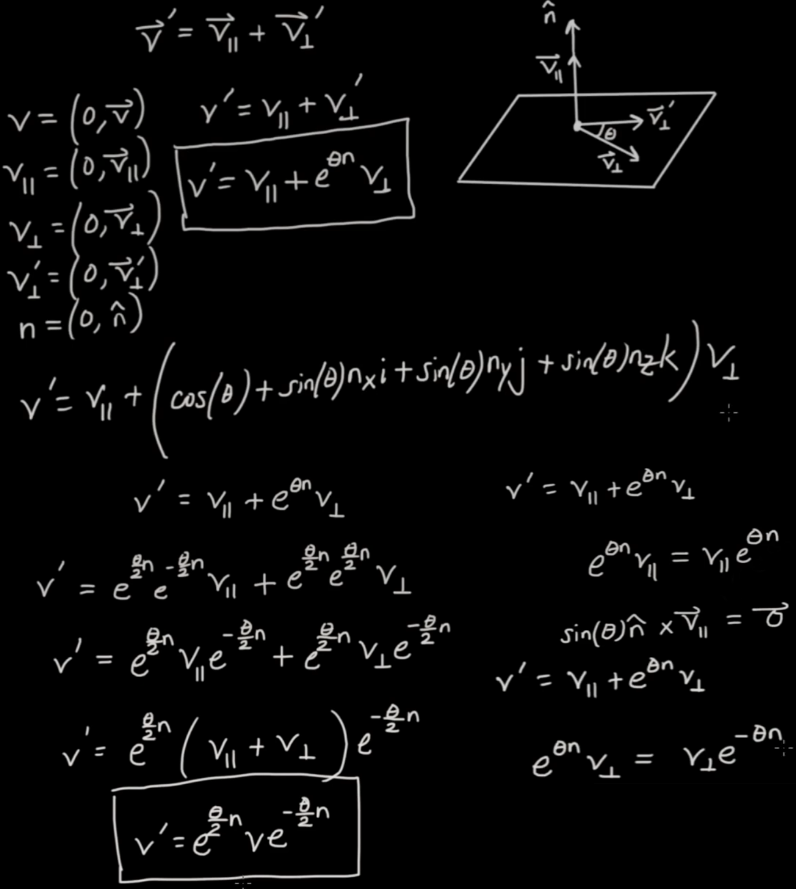 v⃗′ = v⃗∥ + v⃗⊥′
n̂
v⃗∥
v⃗⊥′
θ
v⃗⊥
v = (0, v⃗)
v∥ = (0, v⃗∥)
v⊥ = (0, v⃗⊥)
v⊥′ = (0, v⃗⊥′)
n = (0, n̂)
v′ = v∥ + v⊥′
v′ = v∥ + e^{θn} v⊥
v′ = v∥ + (cos(θ) + sin(θ)nₓi + sin(θ)n_y j + sin(θ)n_z k) v⊥
v′ = v∥ + e^{θn} v⊥
v′ = e^{θ/2 n} e^{-θ/2 n} v∥ + e^{θ/2 n} e^{θ/2 n} v⊥
v′ = e^{θ/2 n} v∥ e^{-θ/2 n} + e^{θ/2 n} v⊥ e^{-θ/2 n}
v′ = e^{θ/2 n} (v∥ + v⊥) e^{-θ/2 n}
v′ = e^{θ/2 n} v e^{-θ/2 n}
v′ = v∥ + e^{θn} v⊥
e^{θn} v∥ = v∥ e^{θn}
sin(θ) n̂ × v⃗∥ = 0⃗
v′ = v∥ + e^{θn} v⊥
e^{θn} v⊥ = v⊥ e^{-θn}